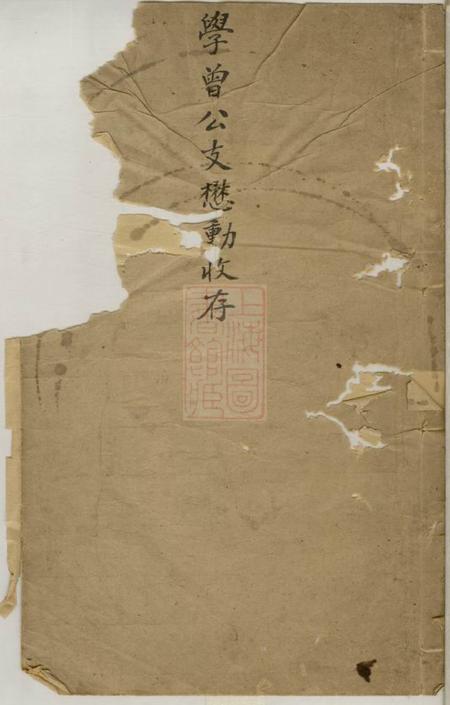 學曾公支懋勳收存
上海圖
書館藏